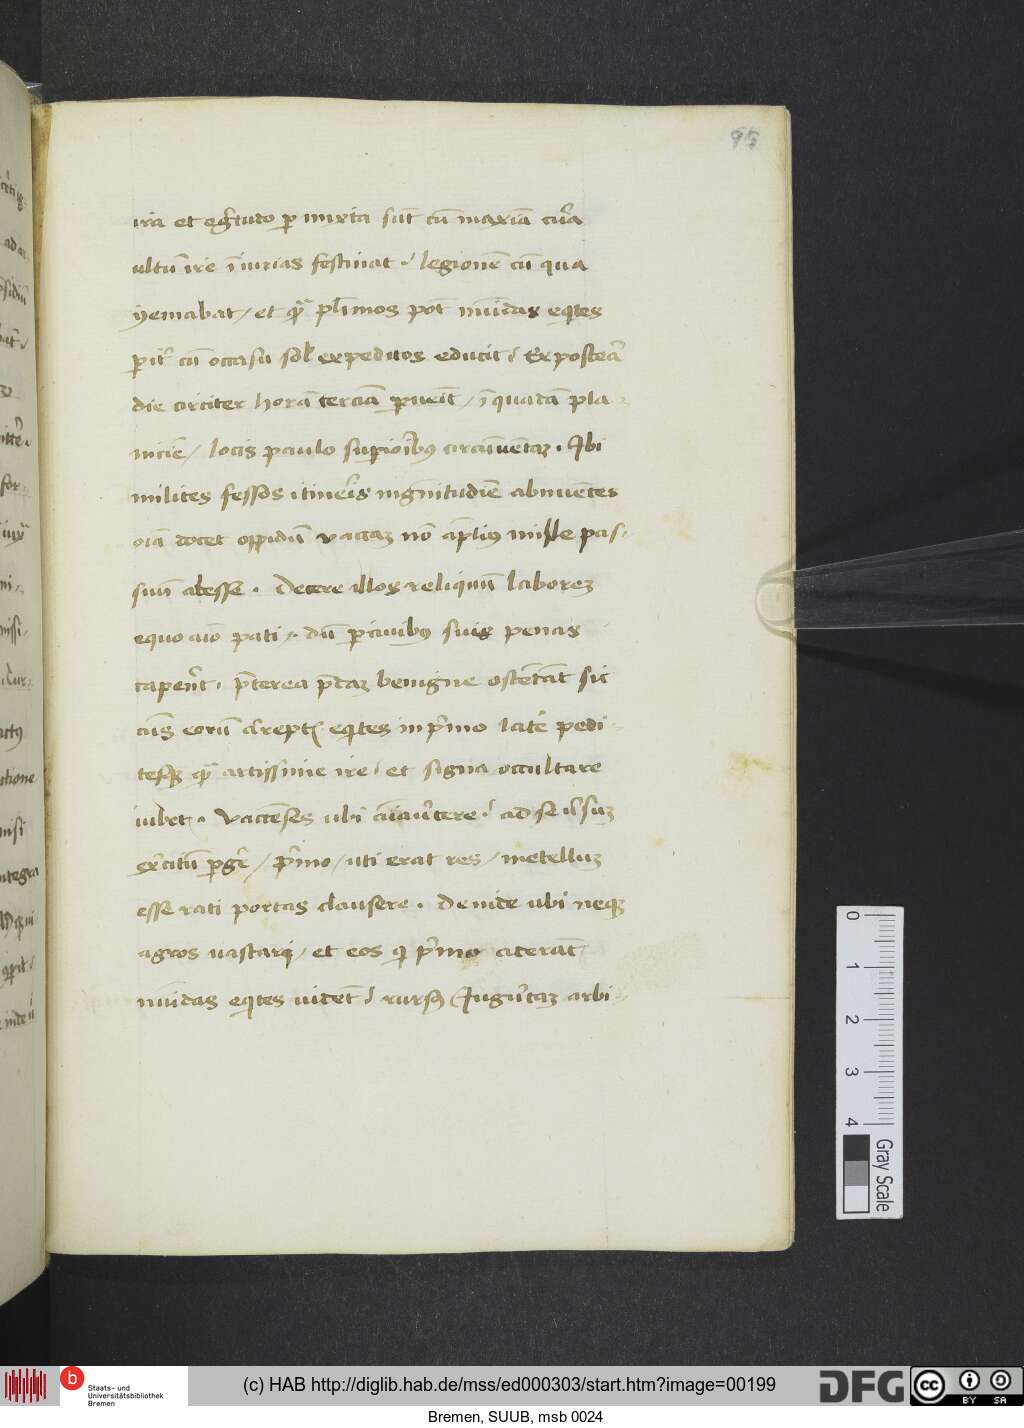 95
ira et egr̄tudo ꝑ mixta sūt cū maxīa cūra
ultū ire īiurias festinat. legionē cū qua
yemabat / et qr̄ plīmos pot nūidas eqites
ꝑit̄ cū occasu sol expeditos educit. Et postea
die circiter horā terciā ꝑuēit / ī quadā pla-
niciē / locis paulo suꝑiorībꝰ circūuētaꝫ. Ibi
milites fessos itinēis magnitudīē abnuētes
oīā docet oppidū vaccaꝫ nō āplius mille pas-
suū abesse. Decere illos reliquū laboreꝫ
equo aīo pati / dū ꝑ ciuibꝰ suis penas
caperēt. p̄terea p̄daꝫ benigne ostētāt sic
aīs eorū arrept̄ eqites in p̄mo late pedi-
tesqꝫ qr̄ artissime ire / et signa occultare
iubet. Vaccēses ubi aīaūtere / ad se ūsuꝫ
ex̄citū ꝑgē / p̄mo / uti erat res / metelluꝫ
esse rati portas clausere. Deinde ubi neqꝫ
agros uastari / et eos qi p̄mo aderāt
nūidas eqites uidēt / rursꝰ Jugūtaꝫ arbi-
0 1 2 3 4
Gray Scale
b
Staats- und
Universitätsbibliothek
Bremen
(c) HAB http://diglib.hab.de/mss/ed000303/start.htm?image=00199
DFG
cc
BY SA
Bremen, SUUB, msb 0024